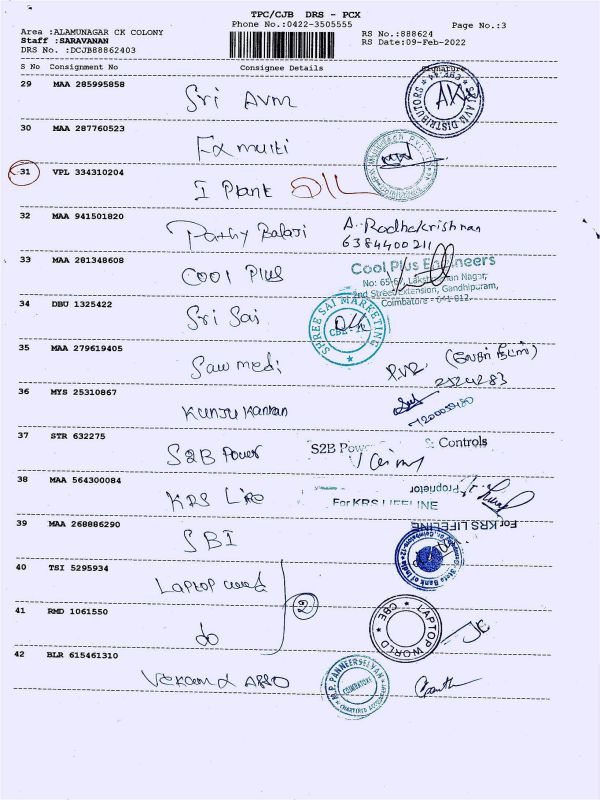 TPC/CJB DRS - PCX
Phone No.:0422-3505555
Page No.:3
Area :ALAMUNAGAR CK COLONY
Staff :SARAVANAN
DRS No. :DCJB88862403
RS No.:888624
RS Date:09-Feb-2022
S No Consignment No Consignee Details Signature
29 MAA 285995858
Sri AVM
SRI AVM DISTRIBUTORS
30 MAA 287760523
Fx multi
31 VPL 334310204
I Plant
32 MAA 941501820
Pathy Balaji A. Radhakrishnan
6384400211
33 MAA 281348608
Cool Plus
Cool Plus Engineers
Nagar,
2nd Street Extension, Gandhipuram,
Coimbatore - 641 012.
34 DBU 1325422
Sri Sai
SHREE SAI MARKETING
35 MAA 279619405
Saw medi
36 MYS 25310867
Kunju Kannan
37 STR 632275
S2B Power
S2B Pow & Controls
38 MAA 564300084
KRS Life
Proprietor
For KRS LIFELINE
For KRS LIFELINE
39 MAA 268886290
SBI
State Bank of India
40 TSI 5295934
Laptop world
2
41 RMD 1061550
do
LAPTOP WORLD CBE
42 BLR 615461310
M.P. PANNEERSELVAM
COIMBATORE
CHARTERED ACCOUNTANT